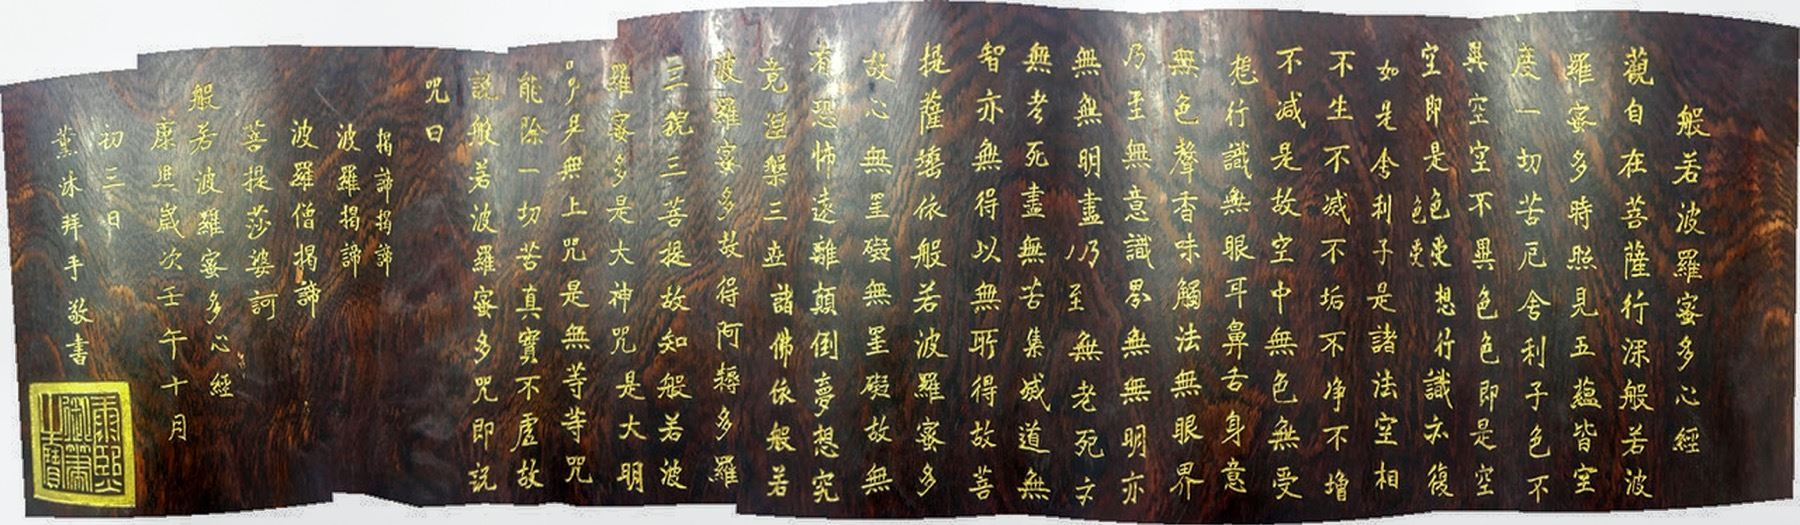 般若波羅蜜多心經
觀自在菩薩行深般若波
羅蜜多時照見五蘊皆空
度一切苦厄舍利子色不
異空空不異色色即是空
空即是色受想行識亦復
色受
如是舍利子是諸法空相
不生不滅不垢不净不增
不減是故空中無色無受
想行識無眼耳鼻舌身意
無色聲香味觸法無眼界
乃至無意識界無無明亦
無無明盡乃至無老死亦
無老死盡無苦集滅道無
智亦無得以無所得故菩
提薩埵依般若波羅蜜多
故心無罣礙無罣礙故無
有恐怖遠離顛倒夢想究
竟涅槃三世諸佛依般若
波羅蜜多故得阿耨多羅
三藐三菩提故知般若波
羅蜜多是大神咒是大明
咒是無上咒是無等等咒
能除一切苦真實不虛故
說般若波羅蜜多咒即說
咒曰
揭諦揭諦
波羅揭諦
波羅僧揭諦
菩提莎婆訶
般若波羅蜜多心經
康熙歲次壬午十月
初三日
薰沐拜手敬書
康熙御筆之寶